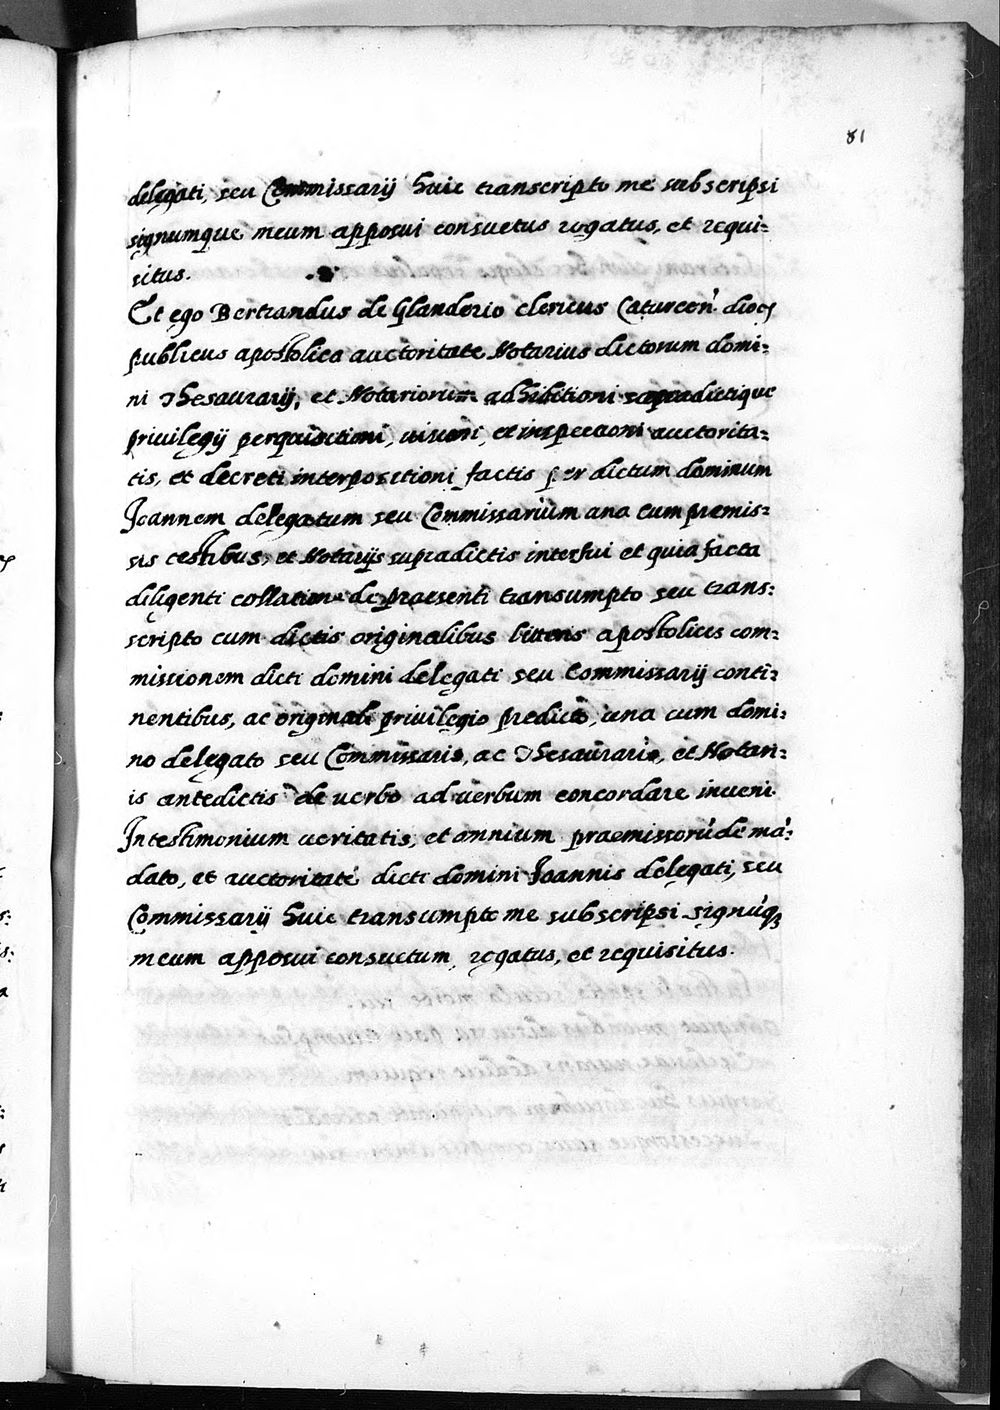 81
delegati, seu Commissarij huic transcripto me subscripsi
signumque meum apposui consuetus rogatus, et requi=
situs.
Et ego Bertrandus de Glanderio clericus Caturcen̄ dioc̨
publicus apostolica auctoritate Notarius dictorum domi=
ni Thesaurarij, et Notariorum adhibitioni supradictique
privilegij perquisitioni, visioni, et inspectioni auctorita=
tis, et decreti interpositioni factis per dictum dominum
Joannem delegatum seu Commissarium una cum premis=
sis testibus, et Notarijs supradictis interfui et quia facta
diligenti collatione de praesenti transumpto seu trans=
scripto cum dictis originalibus litteris apostolicis com=
missionem dicti domini delegati seu Commissarij conti=
nentibus, ac originali privilegio predicto, una cum domi=
no delegato seu Commissario, ac Thesaurario, et Notari=
is antedictis de verbo ad verbum concordare inveni.
In testimonium veritatis, et omnium praemissorū de mā=
dato, et auctoritate dicti domini Joannis delegati, seu
Commissarij huic transumpto me subscripsi signūq̨
meum apposui consuetum, rogatus, et requisitus.